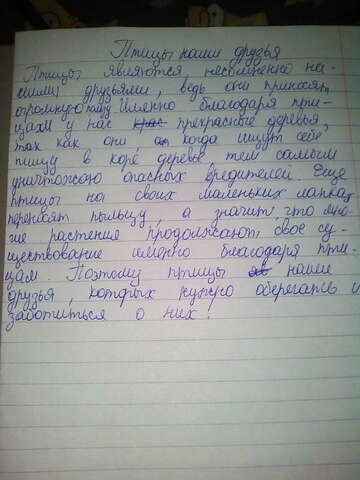 Птицы наши друзья
Птицы являются, несомненно на-
шими друзьями, ведь они приносят
огромную пищу. Именно благодаря пти-
цам у нас крас прекрасные деревья,
так как они, когда ищут себе
пищу в коре деревье, тем самым
уничтожаю опасных вредителей. Ещё
птицы на своих маленьких лапках
переносят пыльцу, а значит, что мно-
гие растения продолжают свое су-
ществование именно благодаря пти-
цам. Поэтому птицы наши
друзья, которых нужно оберегать и
заботиться о них!